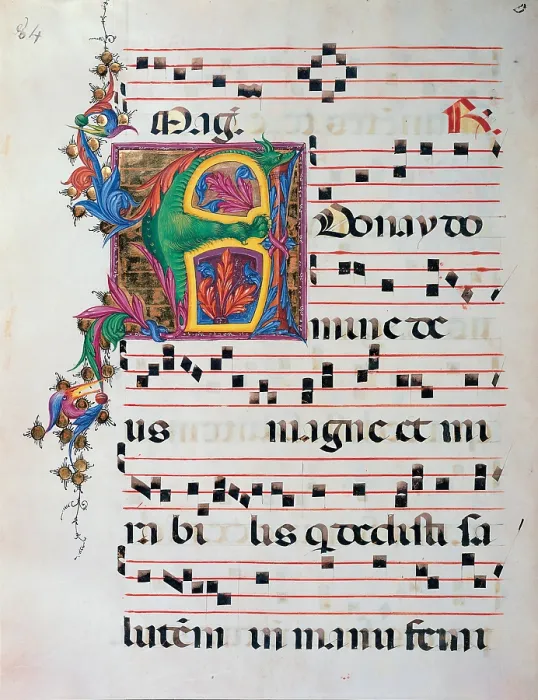 84
Mag̃. R̃.
Adonay do
mine de
us magne et mi
ra bi lis q dedisti sa
lutem in manu femi